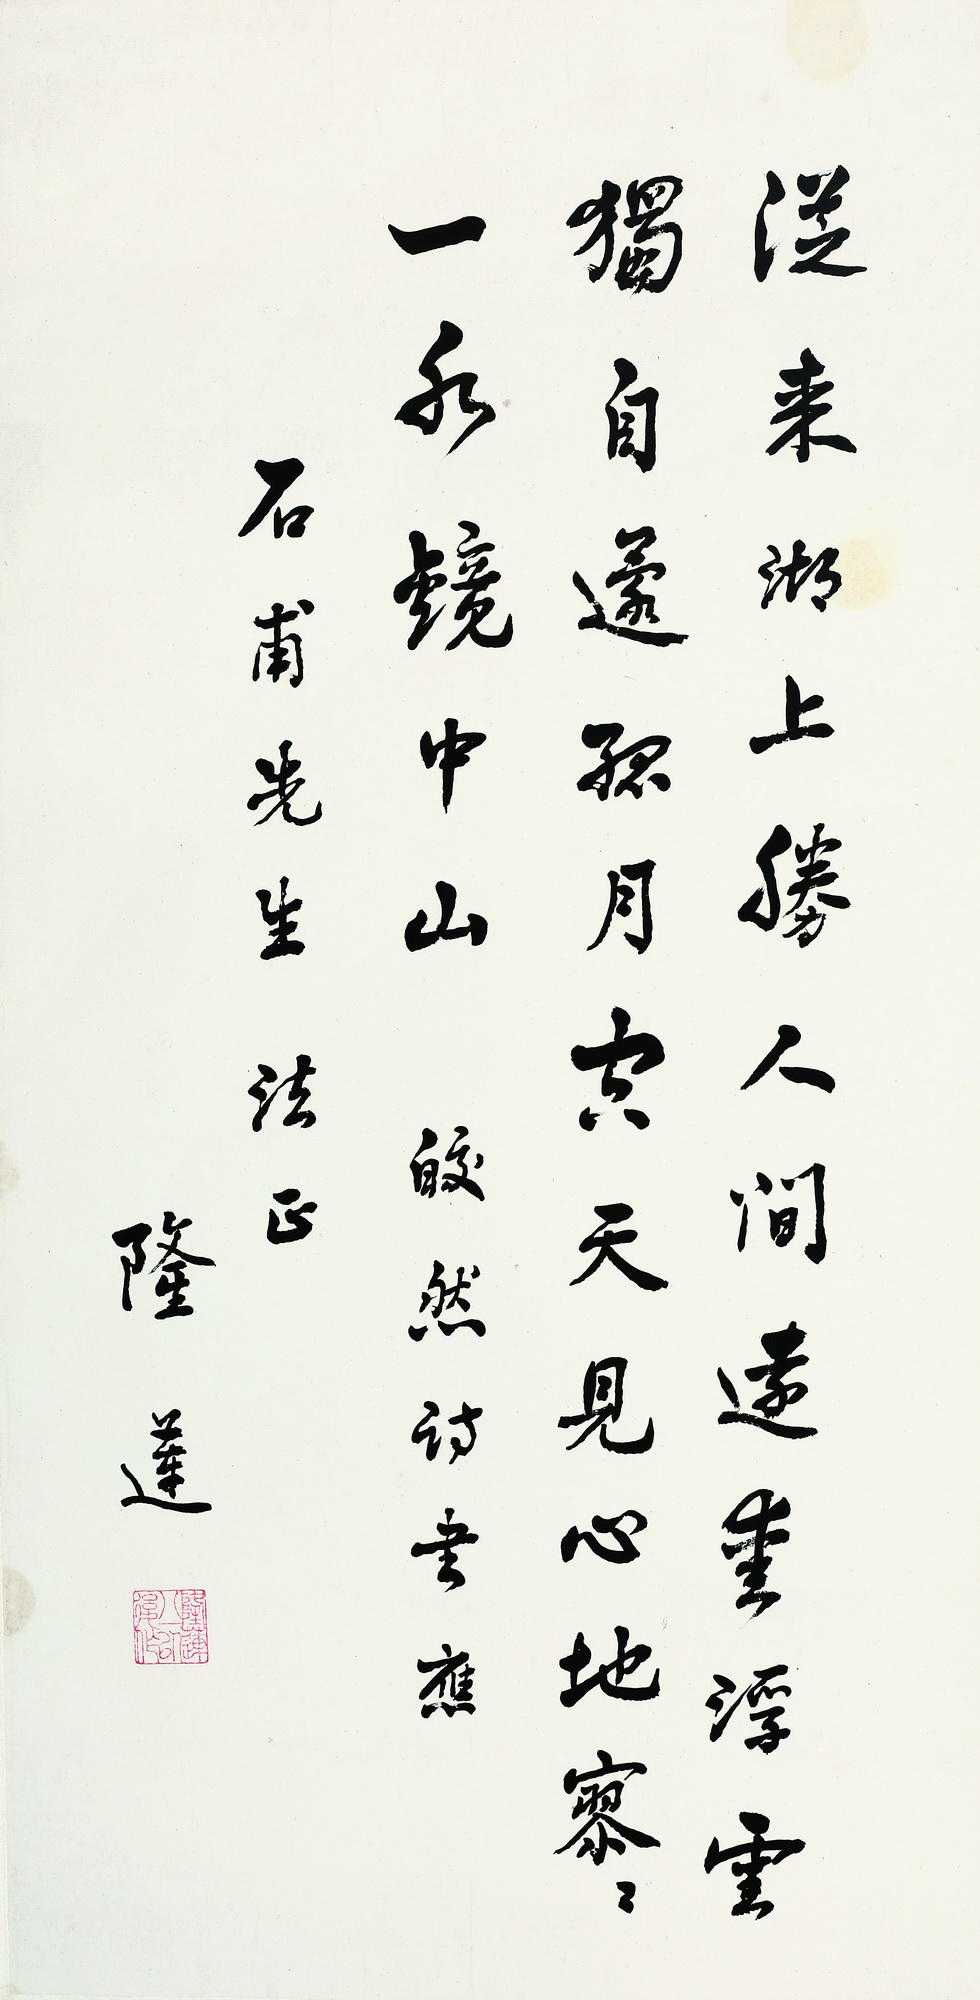 從来湖上勝人間遠愛浮雲
獨自還孤月空天見心地寥〻
一水鏡中山 皎然詩書應
石甫先生 法正
隆蓮